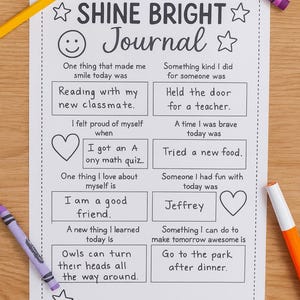 SHINE BRIGHT
Journal
One thing that made me
smile today was
Reading with my
new classmate.
Something kind I did
for someone was
Held the door
for a teacher.
I felt proud of myself
when
I got an A
ony math quiz.
A time I was brave
today was
Tried a new food.
One thing I love about
myself is
I am a good
friend.
Someone I had fun with
today was
Jeffrey
A new thing I learned
today is
Owls can turn
their heads all
the way around.
Something I can do to
make tomorrow awesome is
Go to the park
after dinner.